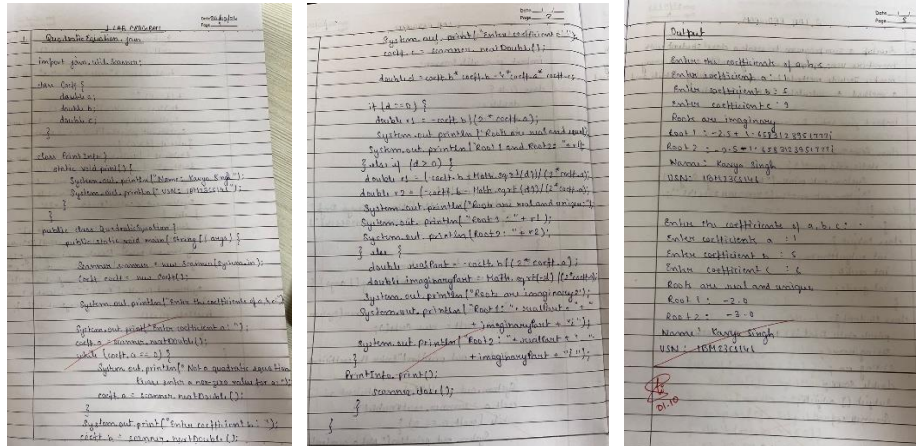 LAB PROGRAM
1 Quadratic Equation
import java.util.Scanner;
class Coeff {
double a;
double b;
double c;
}
class PrintInfo {
static void print() {
System.out.println("Name: Kavya Singh");
System.out.println("USN:
}
}
public class QuadraticEquation {
public static void main(String[] args) {
Scanner scanner = new Scanner(System.in);
Coeff coeff = new Coeff();
System.out.println("Enter the coefficients of a,b,c:
System.out.print("Enter coefficient a: ");
coeff.a = scanner.nextDouble();
while (coeff.a == 0) {
System.out.println("Not a quadratic equation
enter a non-zero value for a:");
coeff.a = scanner.nextDouble();
}
System.out.print("Enter coefficient b: ");
coeff.b = scanner.nextDouble();
Date
Page 2
System.out.print("Enter coefficient c: ");
coeff.c = scanner.nextDouble();
double d = coeff.b * coeff.b - 4 * coeff.a * coeff.c;
if (d == 0) {
double r1 = -coeff.b / (2 * coeff.a);
System.out.println("Roots are real and equal
System.out.println("Root 1 and Root 2: " + r1
} else if (d > 0) {
double r1 = (-coeff.b + Math.sqrt(d)) / (2 * coeff.a);
double r2 = (-coeff.b - Math.sqrt(d)) / (2 * coeff.a);
System.out.println("Roots are real and unique:");
System.out.println("Root 1: " + r1);
System.out.println("Root 2: " + r2);
} else {
double realPart = -coeff.b / (2 * coeff.a);
double imaginaryPart = Math.sqrt(-d) / (2 * coeff.a);
System.out.println("Roots are imaginary:");
System.out.println("Root 1: " + realPart + " + "
+ imaginaryPart + "i");
System.out.println("Root 2: " + realPart + " - "
} + imaginaryPart + "i");
PrintInfo.print();
scanner.close();
}
}
Date
Page 3
Output
Enter the coefficients of a,b,c:
Enter coefficient a : 1
Enter coefficient b : 5
Enter coefficient c : 9
Roots are imaginary
Root 1 : -2.5 +
Root 2 : -2.5 -
Name : Kavya Singh
USN :
Enter the coefficients of a, b, c :
Enter coefficient a : 1
Enter coefficient b : 5
Enter coefficient c : 6
Roots are real and unique
Root 1 : -2.0
Root 2 : -3.0
Name : Kavya Singh
USN :
01.10